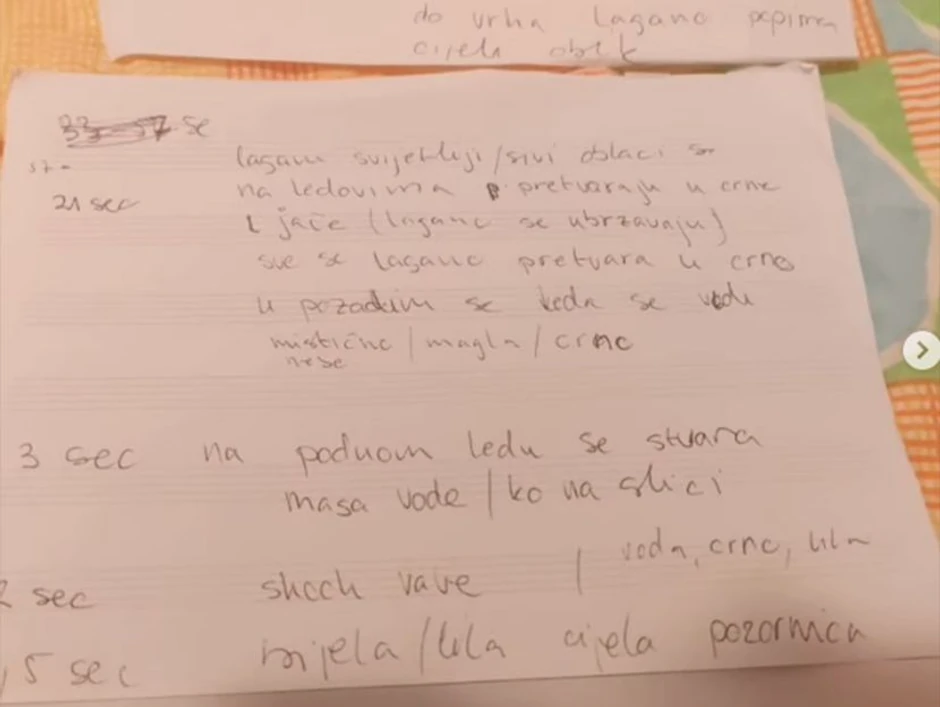 do vrha lagano poprima
cijela oblik
sec
lagani svijetliji/sivi oblaci se
21 sec
na ledovima pretvaraju u crne
i jače (lagano se ubrzavaju)
sve se lagano pretvara u crno
u pozadini se leda se
mistično/magla/crno
3 sec na podnom ledu se stvara
masa vode/ko na slici
2 sec shock vave / voda, crno, lila
,5 sec bijela/lila cijela pozornica